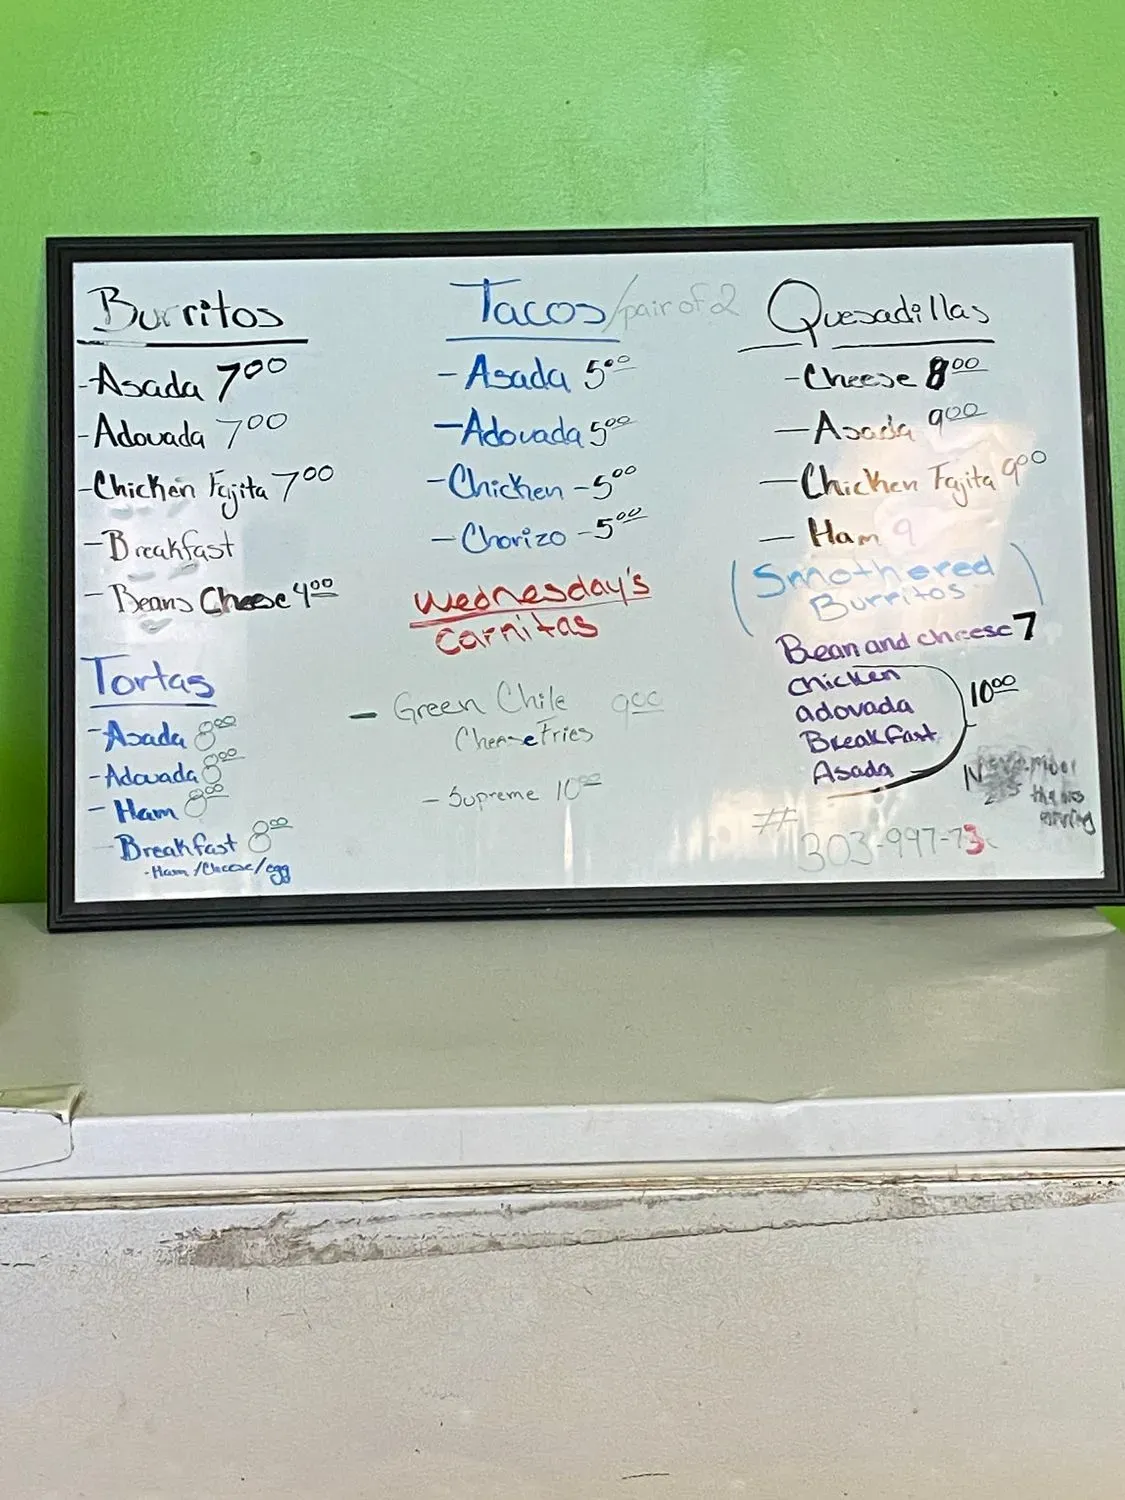 Burritos
-Asada 7⁰⁰
-Adovada 7⁰⁰
-Chicken Fajita 7⁰⁰
-Breakfast
-Beans Cheese 4⁰⁰
Tortas
-Asada 8⁰⁰
-Adovada 8⁰⁰
-Ham 8⁰⁰
-Breakfast 8⁰⁰
-Ham/Cheese/egg
Tacos/pair of 2
-Asada 5⁰⁰
-Adovada 5⁰⁰
-Chicken -5⁰⁰
-Chorizo -5⁰⁰
Wednesday's
Carnitas
- Green Chile 9⁰⁰
Cheese Fries
- Supreme 10⁰⁰
Quesadillas
-Cheese 8⁰⁰
-Asada 9⁰⁰
-Chicken Fajita 9⁰⁰
- Ham 9
(Smothered
Burritos)
Bean and cheese 7
chicken
adovada
Breakfast
Asada
10⁰⁰
#
303-997-73